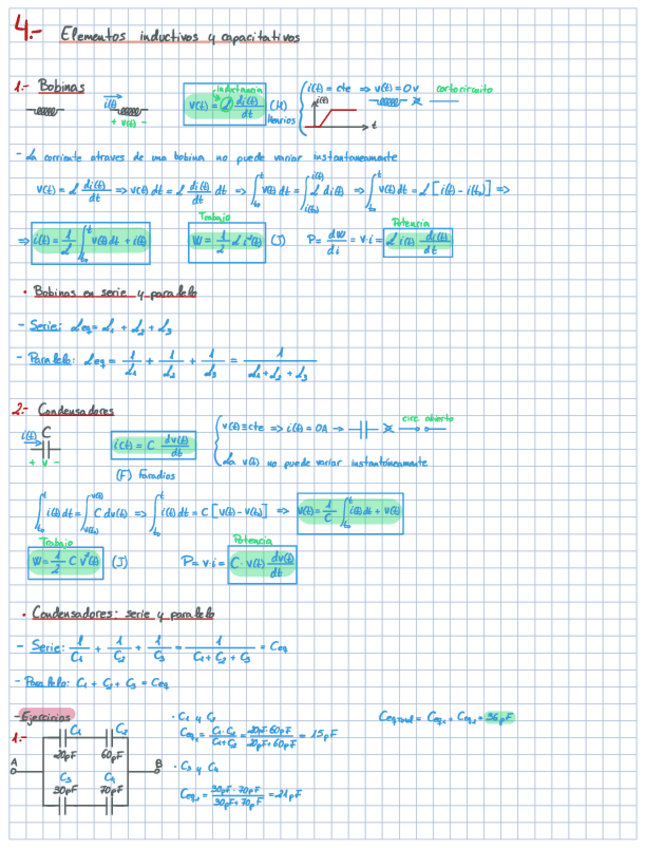 4.- Elementos inductivos y capacitativos
1.- Bobinas
i(t)
+ v(t) -
Inductancia
v(t) = L di(t)/dt (H) Henrios
i(t) = cte ⇒ v(t) = 0v cortocircuito
i(t)
t
- La corriente atraves de una bobina no puede variar instantaneamente
v(t) = L di(t)/dt ⇒ v(t) dt = L di(t)/dt dt ⇒ ∫_{t₀}^{t} v(t) dt = ∫_{i(t₀)}^{i(t)} L di(t) ⇒ ∫_{t₀}^{t} v(t) dt = L [i(t) - i(t₀)] ⇒
Trabajo
Potencia
⇒ i(t) = 1/L ∫_{t₀}^{t} v(t) dt + i(t)
W = 1/2 L i²(t) (J)
P = dw/di = v·i = L i(t) di(t)/dt
• Bobinas en serie y paralelo
- Serie: Leq = L₁ + L₂ + L₃
- Paralelo: Leq = 1/L₁ + 1/L₂ + 1/L₃ = 1/(L₁ + L₂ + L₃)
2.- Condensadores
i(t) C
+ v -
i(t) = C dv(t)/dt
(F) Faradios
v(t) = cte ⇒ i(t) = 0A → circ. abierto
La v(t) no puede variar instantáneamente
∫_{t₀}^{t} i(t) dt = ∫_{v(t₀)}^{v(t)} C dv(t) ⇒ ∫_{t₀}^{t} i(t) dt = C [v(t) - v(t₀)] ⇒ v(t) = 1/C ∫_{t₀}^{t} i(t) dt + v(t)
Trabajo
Potencia
W = 1/2 C v²(t) (J)
P = v·i = C · v(t) dv(t)/dt
• Condensadores: serie y paralelo
- Serie: 1/C₁ + 1/C₂ + 1/C₃ = 1/(C₁ + C₂ + C₃) = Ceq
- Paralelo: C₁ + C₂ + C₃ = Ceq
- Ejercicios
1.-
C₁ C₂
20pF 60pF
A B
C₃ C₄
30pF 70pF
• C₁ y C₂
Ceq₁ = C₁·C₂/(C₁+C₂) = 20pF·60pF/(20pF+60pF) = 15pF
• C₃ y C₄
Ceq₂ = 30pF·70pF/(30pF+70pF) = 21pF
Ceq total = Ceq₁ + Ceq₂ = 36pF